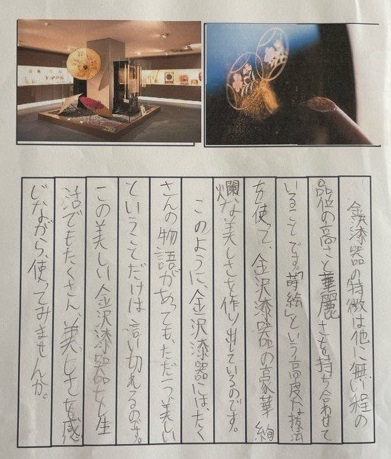 金漆器の特徴は他に無い程の
品位の高さと華麗さを持ち合わせて
いることです。「蒔絵」という高度な技法
を使って、金沢漆器の豪華絢
爛な美しさを作り出しているのです。
このように、金沢漆器には、たく
さんの物語があっても、ただ一つ、美しい
ということだけは言い切れるのです。
この美しい金沢漆器を生
活でもたくさん、美しさを感
じながら、使ってみませんか。